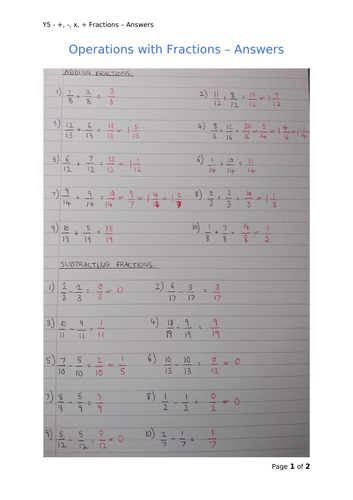 Y5 - +, -, x, ÷ Fractions – Answers
Operations with Fractions – Answers
ADDING FRACTIONS.
1) 1/8 + 2/8 = 3/8 2) 11/12 + 8/12 = 19/12 = 1 7/12
3) 12/13 + 6/13 = 18/13 = 1 5/13 4) 8/16 + 12/16 = 20/16 = 5/4 = 1 4/16 = 1 1/4
5) 6/12 + 7/12 = 13/12 = 1 1/12 6) 1/14 + 10/14 = 11/14
7) 9/14 + 9/14 = 18/14 = 9/7 = 1 4/14 = 1 2/7 8) 2/3 + 2/3 = 4/3 = 1 1/3
9) 10/19 + 5/19 = 15/19 10) 1/8 + 3/8 = 4/8 = 1/2
SUBTRACTING FRACTIONS.
1) 2/3 - 2/3 = 0/3 = 0 2) 6/17 - 3/17 = 3/17
3) 10/11 - 9/11 = 1/11 4) 18/19 - 9/19 = 9/19
5) 7/10 - 5/10 = 2/10 = 1/5 6) 10/13 - 10/13 = 0/13 = 0
7) 8/9 - 5/9 = 3/9 8) 1/2 - 1/2 = 0/2 = 0
9) 5/12 - 5/12 = 0/12 = 0 10) 2/7 - 1/7 = 1/7
Page 1 of 2